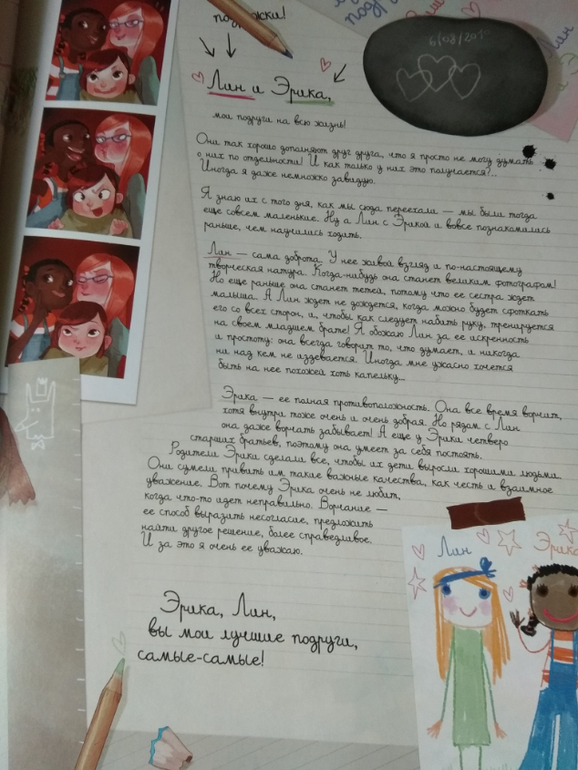 подружки!
6/08/20
Лин и Эрика,
мои подруги на всю жизнь!
Они так хорошо дополняют друг друга, что я просто не могу думать
о них по отдельности! И как только у них это получается?..
Иногда я даже немножко завидую.
Я знаю их с того дня, как мы сюда переехали — мы были тогда
еще совсем маленькие. Ну а Лин с Эрикой и вовсе познакомились
раньше, чем научились ходить.
Лин — сама доброта. У нее живой взгляд и по-настоящему
творческая натура. Когда-нибудь она станет великим фотографом!
Но еще раньше она станет тетей, потому что ее сестра ждет
малыша. А Лин ждет не дождется, когда можно будет сфоткать
его со всех сторон, и, чтобы как следует набить руку, тренируется
на своем младшем брате! Я обожаю Лин за ее искренность
и простоту: она всегда говорит то, что думает, и никогда
ни над кем не издевается. Иногда мне ужасно хочется
быть на нее похожей хоть капельку...
Эрика — ее полная противоположность. Она все время ворчит,
хотя внутри тоже очень и очень добрая. Но рядом с Лин
она даже ворчать забывает! А еще у Эрики четверо
старших братьев, поэтому она умеет за себя постоять.
Родители Эрики сделали все, чтобы их дети выросли хорошими людьми.
Они сумели привить им такие важные качества, как честь и взаимное
уважение. Вот почему Эрика очень не любит,
когда что-то идет неправильно. Ворчание —
ее способ выразить несогласие, предложить
найти другое решение, более справедливое.
И за это я очень ее уважаю.
Лин Эрика
Эрика, Лин,
вы мои лучшие подруги,
самые-самые!